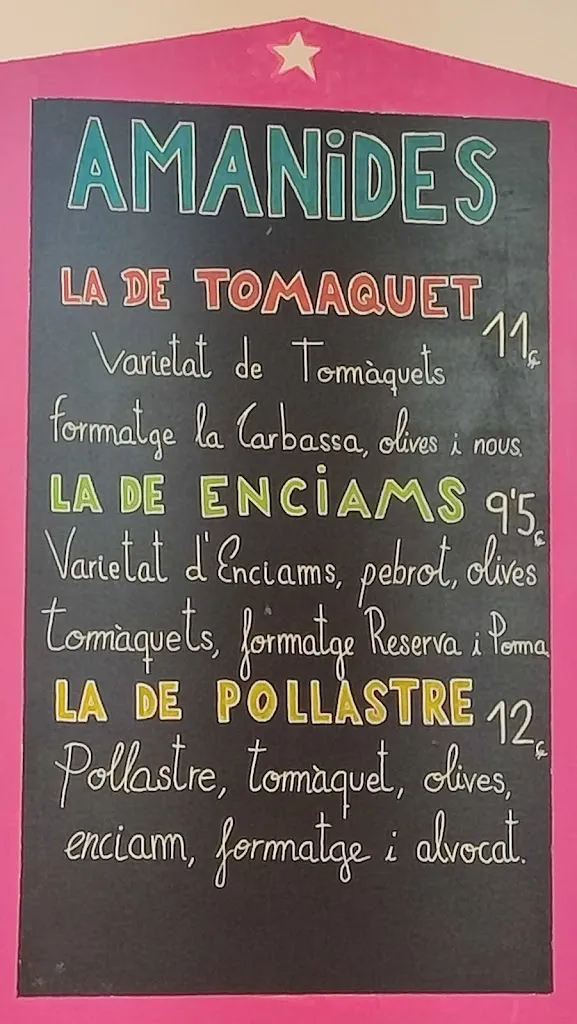 AMANiDES
LA DE TOMAQUET 11€
Varietat de Tomàquets
formatge la Carbassa, olives i nous.
LA DE ENCiAMS 9'5€
Varietat d'Enciams, pebrot, olives
tomàquets, formatge Reserva i Poma
LA DE POLLASTRE 12€
Pollastre, tomàquet, olives,
enciam, formatge i alvocat.